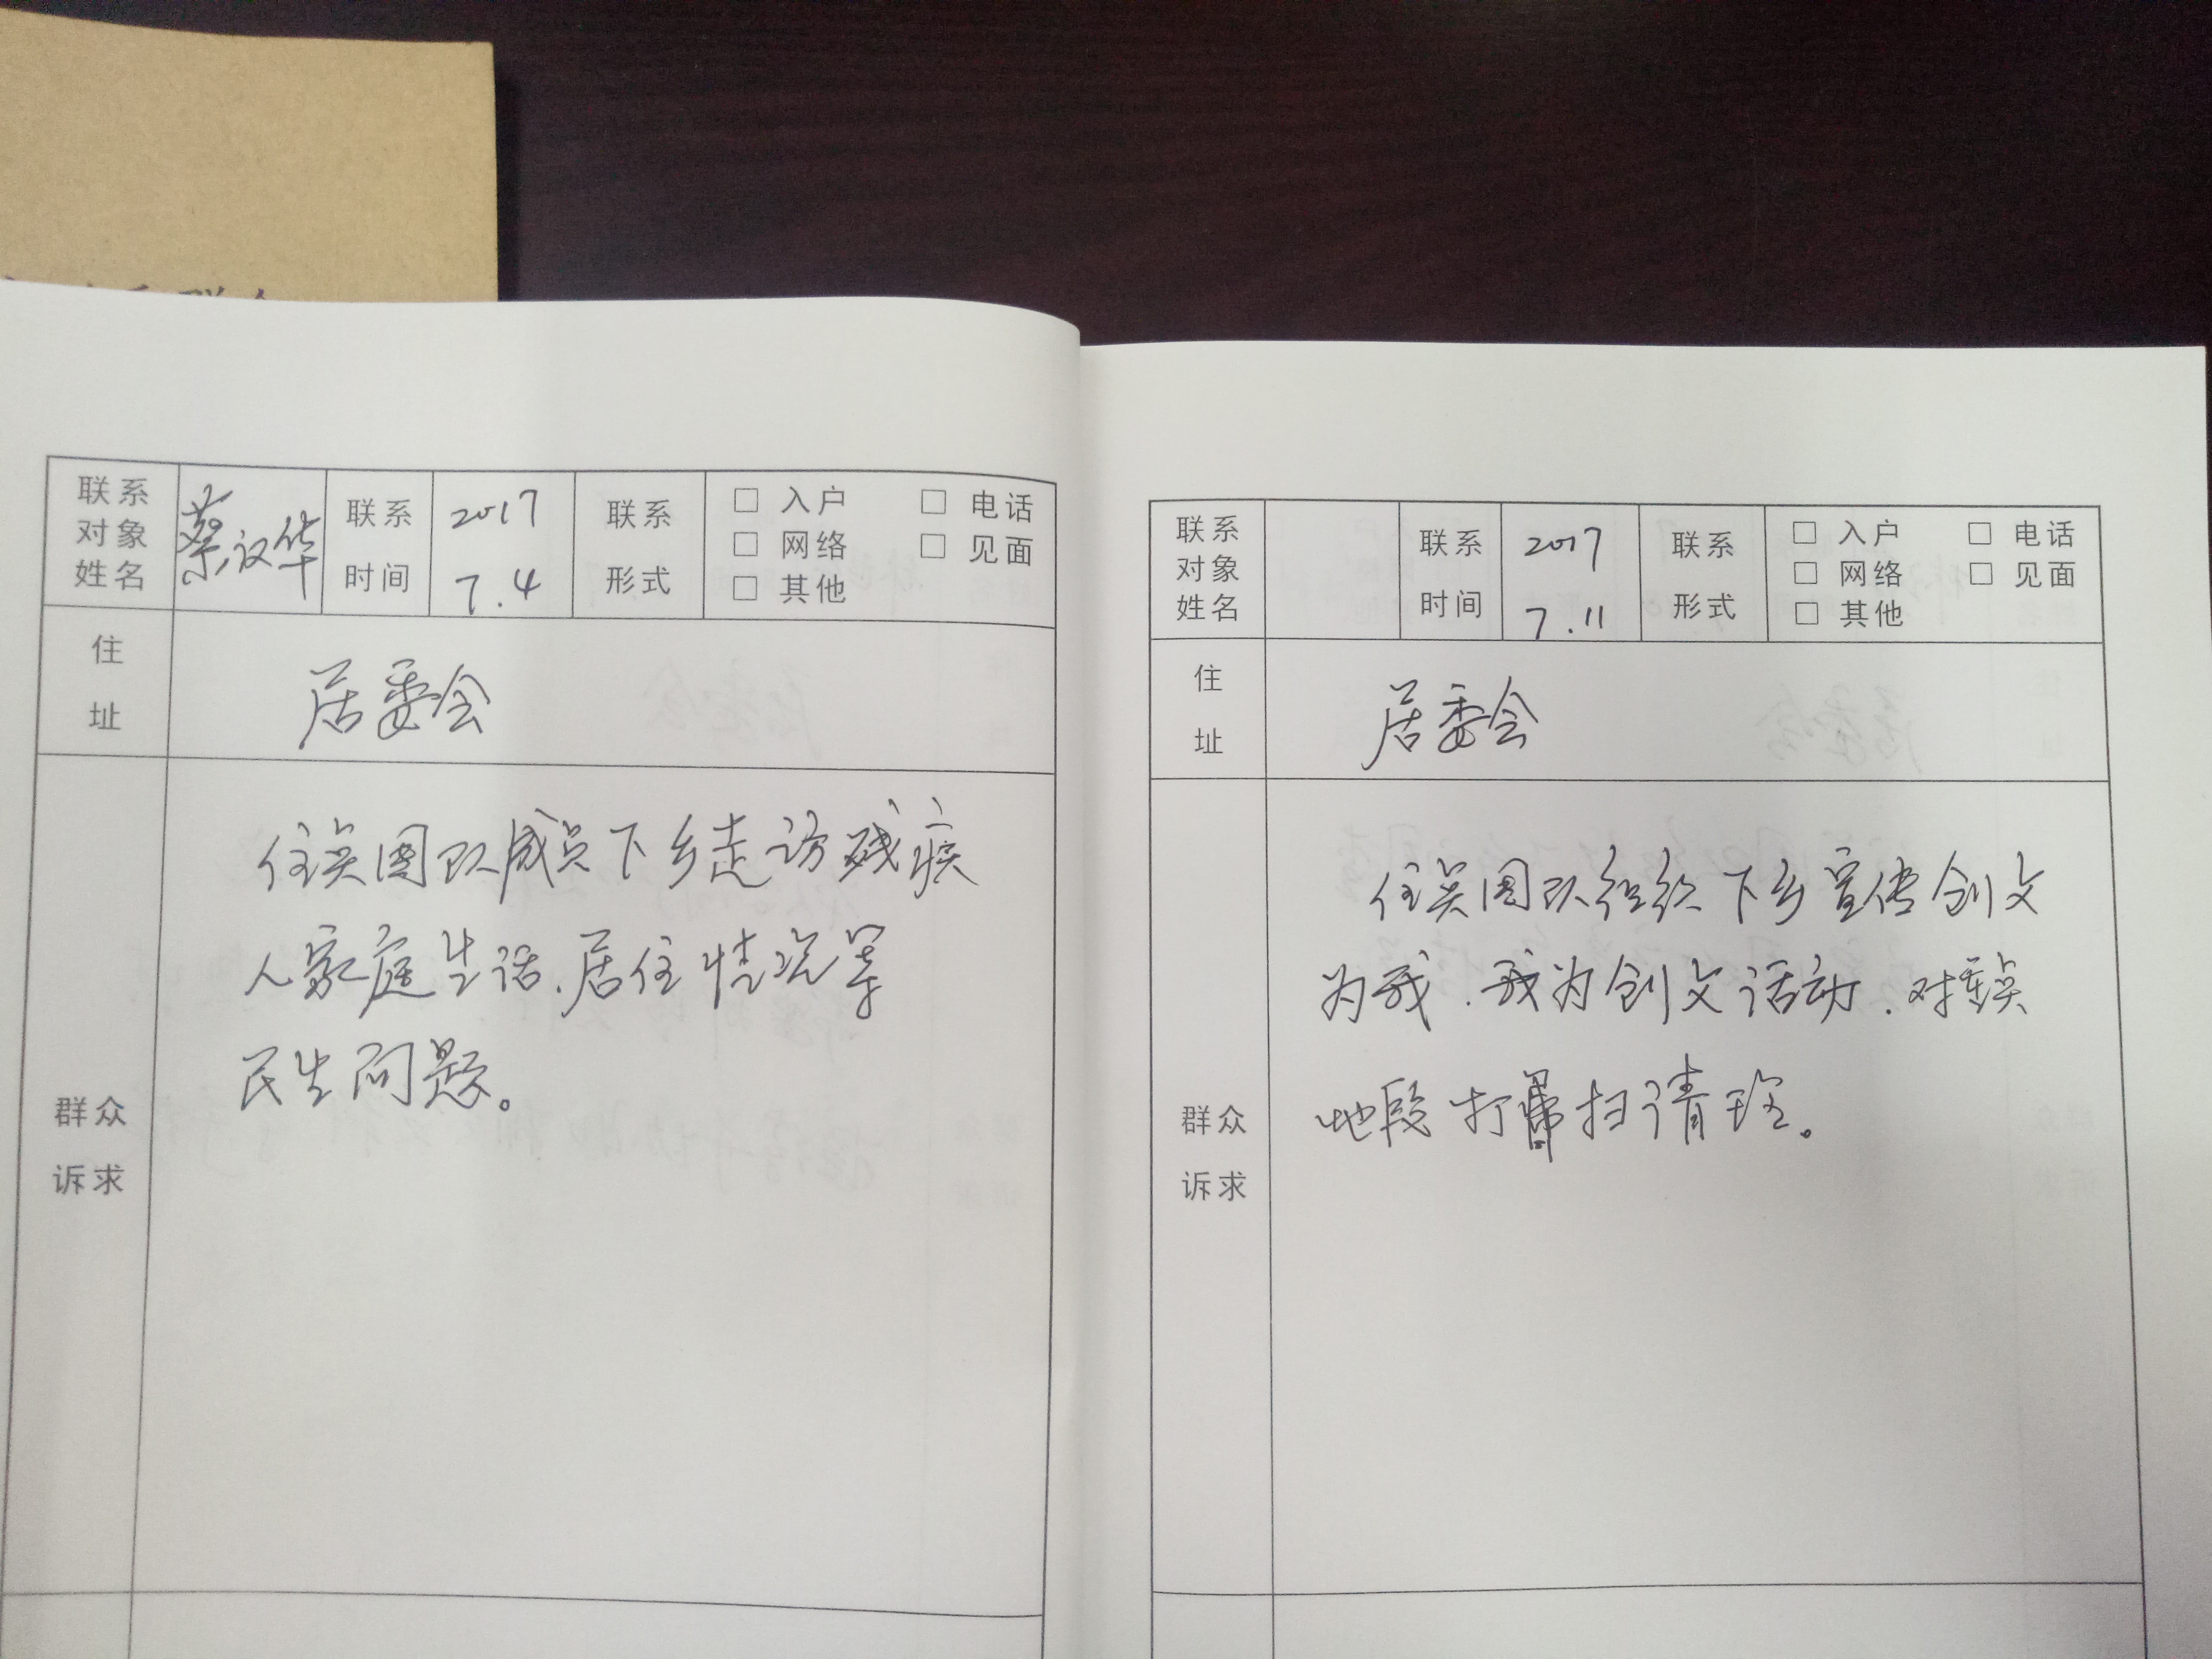 联系对象姓名 蔡汉华 联系时间 2017 7.4 联系形式 □ 入户 □ 电话 □ 网络 □ 见面 □ 其他
住址 居委会
群众诉求
住吴团队成员下乡走访残疾
人家庭生活、居住情况等
民生问题。
联系对象姓名 联系时间 2017 7.11 联系形式 □ 入户 □ 电话 □ 网络 □ 见面 □ 其他
住址 居委会
群众诉求
住吴团队组织下乡宣传创文
为我、我为创文活动、对重点
地段打扫清理。